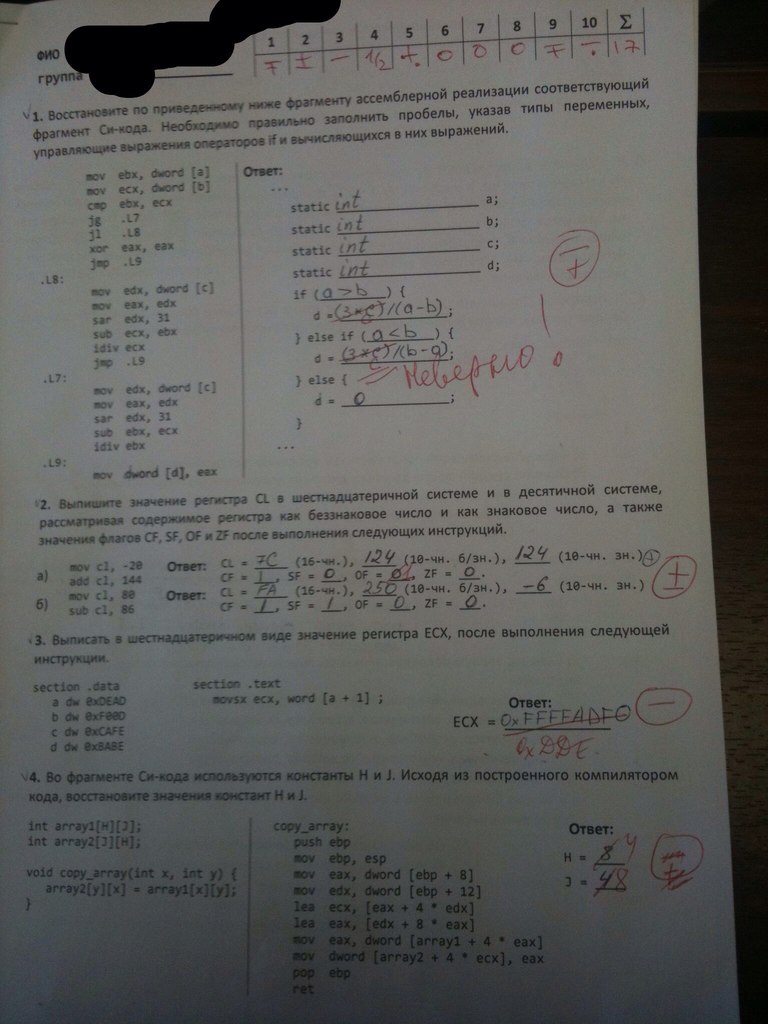 1 2 3 4 5 6 7 8 9 10 Σ
ФИО
∓ ± − 1/2 +. 0 0 0 ∓ ÷ 17
группа
1. Восстановите по приведенному ниже фрагменту ассемблерной реализации соответствующий
фрагмент Си-кода. Необходимо правильно заполнить пробелы, указав типы переменных,
управляющие выражения операторов if и вычисляющихся в них выражений.
mov ebx, dword [a]
mov ecx, dword [b]
cmp ebx, ecx
jg .L7
jl .L8
xor eax, eax
jmp .L9
.L8:
mov edx, dword [c]
mov eax, edx
sar edx, 31
sub ecx, ebx
idiv ecx
jmp .L9
.L7:
mov edx, dword [c]
mov eax, edx
sar edx, 31
sub ebx, ecx
idiv ebx
.L9:
mov dword [d], eax
Ответ:
...
static int a;
static int b;
static int c;
static int d;
if (a>b) {
d = /(a-b);
} else if (a<b) {
d = /(b-a);
} else { Неверно!
d = 0 ;
}
...
∓
2. Выпишите значение регистра CL в шестнадцатеричной системе и в десятичной системе,
рассматривая содержимое регистра как беззнаковое число и как знаковое число, а также
значения флагов CF, SF, OF и ZF после выполнения следующих инструкций.
а) mov cl, -20
add cl, 144
Ответ: CL = 7C (16-чн.), 124 (10-чн. б/зн.), 124 (10-чн. зн.)
CF = 1, SF = 0, OF = 1, ZF = 0.
б) mov cl, 80
sub cl, 86
Ответ: CL = FA (16-чн.), 250 (10-чн. б/зн.), -6 (10-чн. зн.)
CF = 1, SF = 1, OF = 0, ZF = 0.
±
3. Выписать в шестнадцатеричном виде значение регистра ECX, после выполнения следующей
инструкции.
section .data
a dw 0xDEAD
b dw 0xF00D
c dw 0xCAFE
d dw 0xBABE
section .text
movsx ecx, word [a + 1] ;
Ответ:
ECX = 0xFFFFADF0
0xDDE
−
4. Во фрагменте Си-кода используются константы H и J. Исходя из построенного компилятором
кода, восстановите значения констант H и J.
int array1[H][J];
int array2[J][H];
void copy_array(int x, int y) {
array2[y][x] = array1[x][y];
}
copy_array:
push ebp
mov ebp, esp
mov eax, dword [ebp + 8]
mov edx, dword [ebp + 12]
lea ecx, [eax + 4 * edx]
lea eax, [edx + 8 * eax]
mov eax, dword [array1 + 4 * eax]
mov dword [array2 + 4 * ecx], eax
pop ebp
ret
Ответ:
H = 8 4
J = 4 8